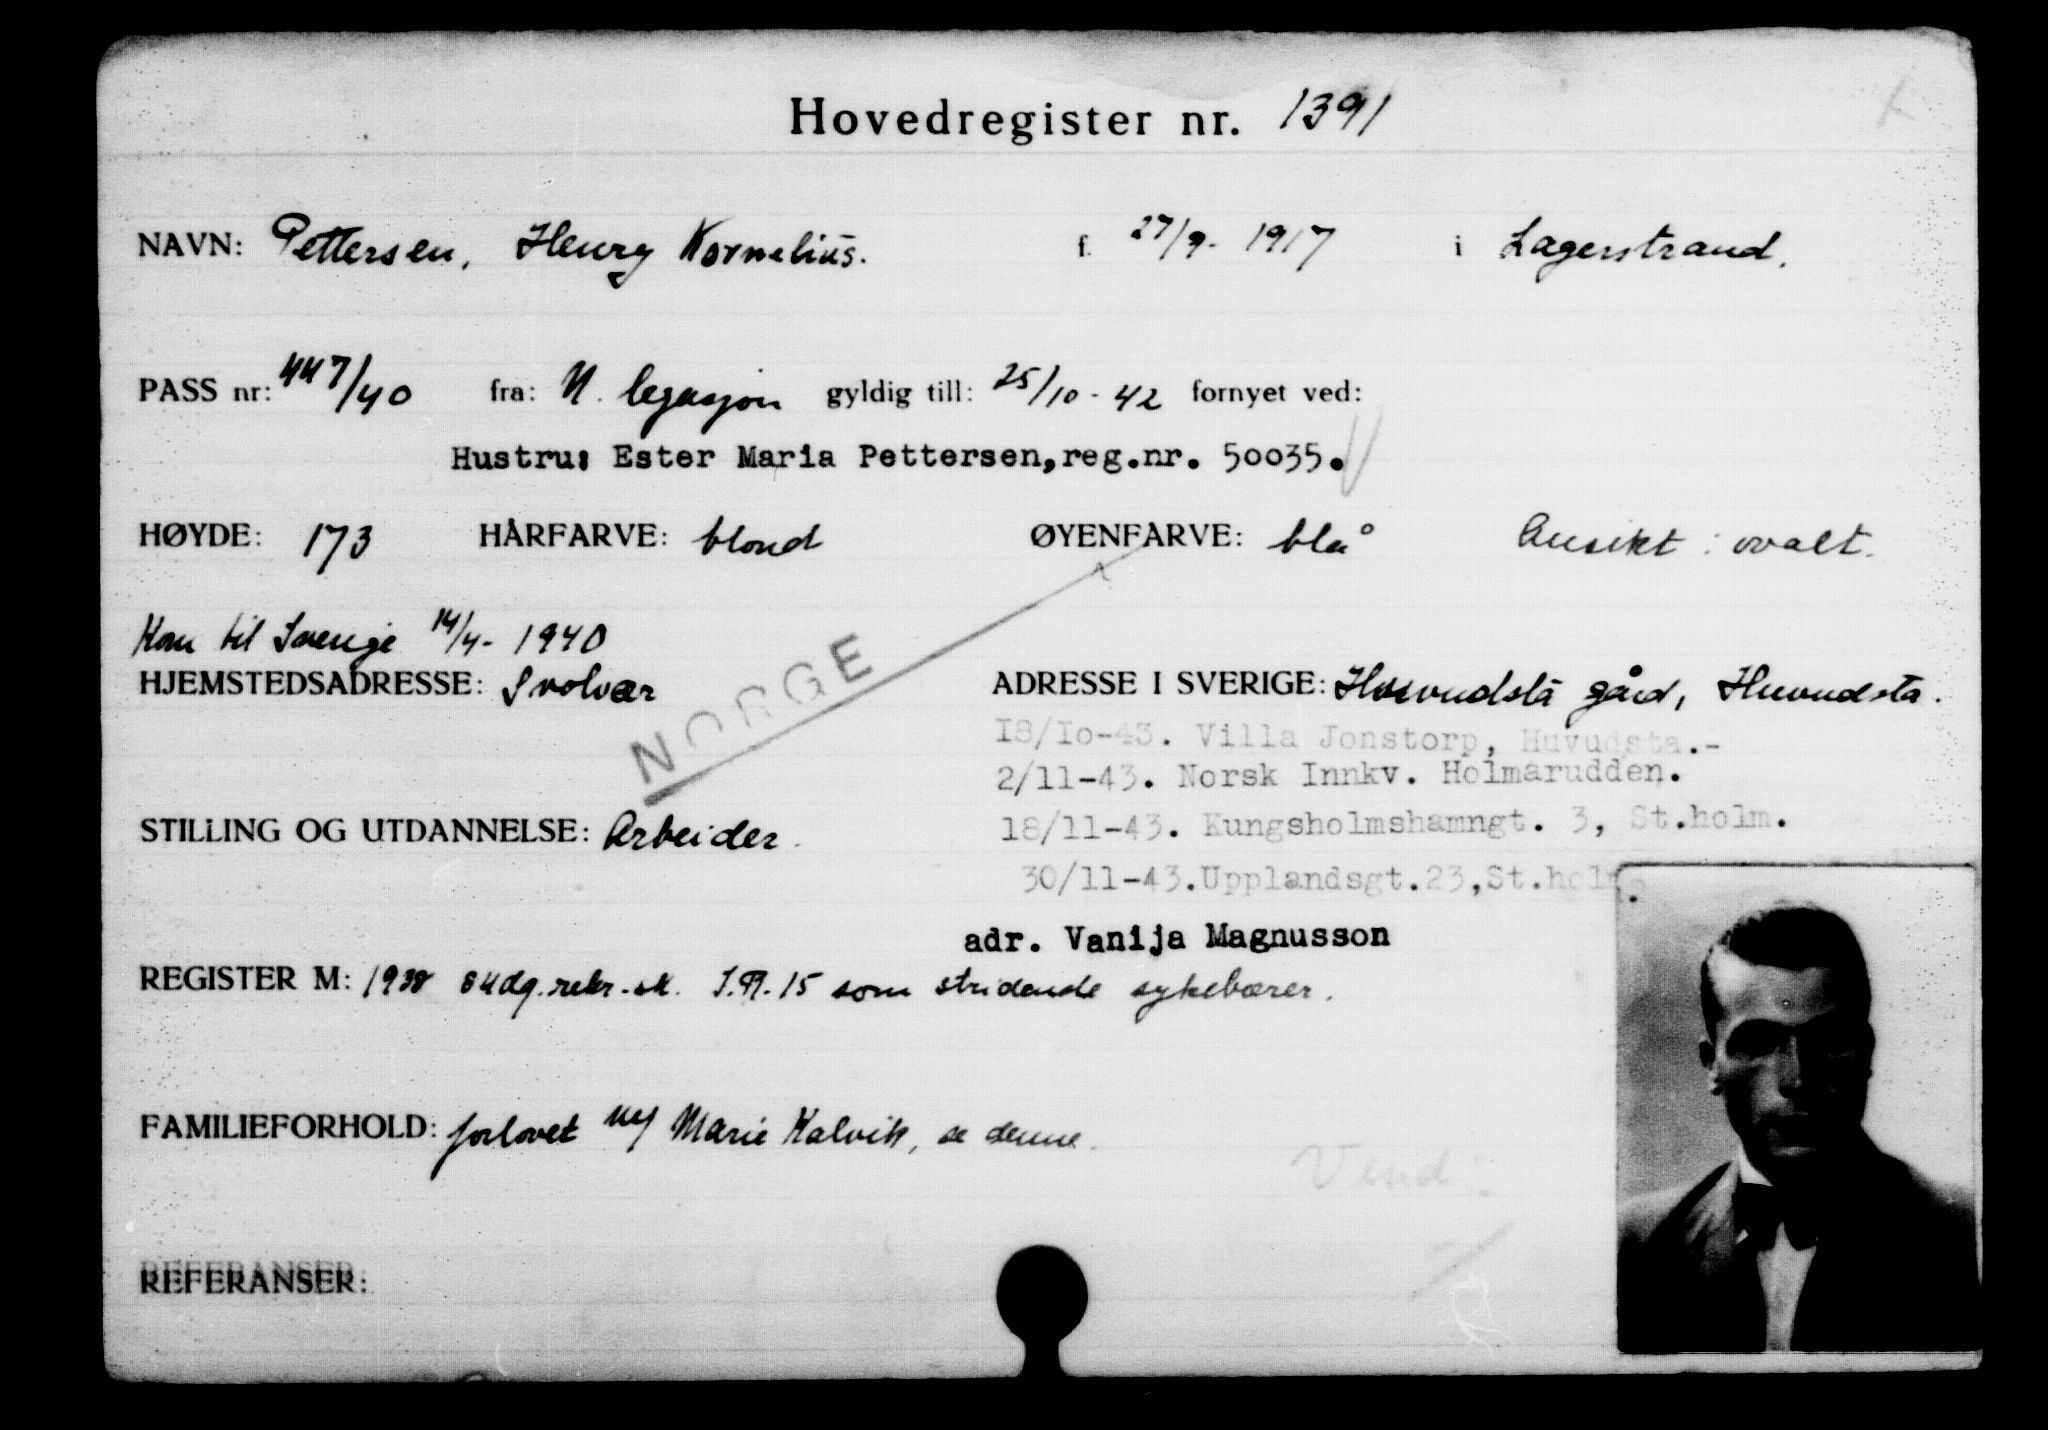 Hovedregister nr. 1391
NAVN: Pettersen, Henry Kornelius. f. 27/9- 1917 i Lagerstrand.
PASS nr: 447/40 fra: N. legasjon gyldig till: 25/10-42 fornyet ved:
Hustru: Ester Maria Pettersen,reg.nr. 50035.
HØYDE: 173 HÅRFARVE: blond ØYENFARVE: blå Ansikt: ovalt.
Kom til Sverige 14/4- 1940
HJEMSTEDSADRESSE: Svolvær ADRESSE I SVERIGE: Huvudsta gård, Huvudsta.
NORGE
18/10-43. Villa Jonstorp, Huvudsta.-
2/11-43. Norsk Innkv. Holmarudden.
STILLING OG UTDANNELSE: Arbeider.
18/11-43. Kungsholmshamngt. 3, St.holm.
30/11-43.Upplandsgt.23,St.holm.
adr. Vanija Magnusson
REGISTER M: 1938 84dg.rekr.sk. I.R.15 som stridende sykebærer.
FAMILIEFORHOLD: forlovet m/ Marie Kalvik, se denne.
Vend:
REFERANSER: